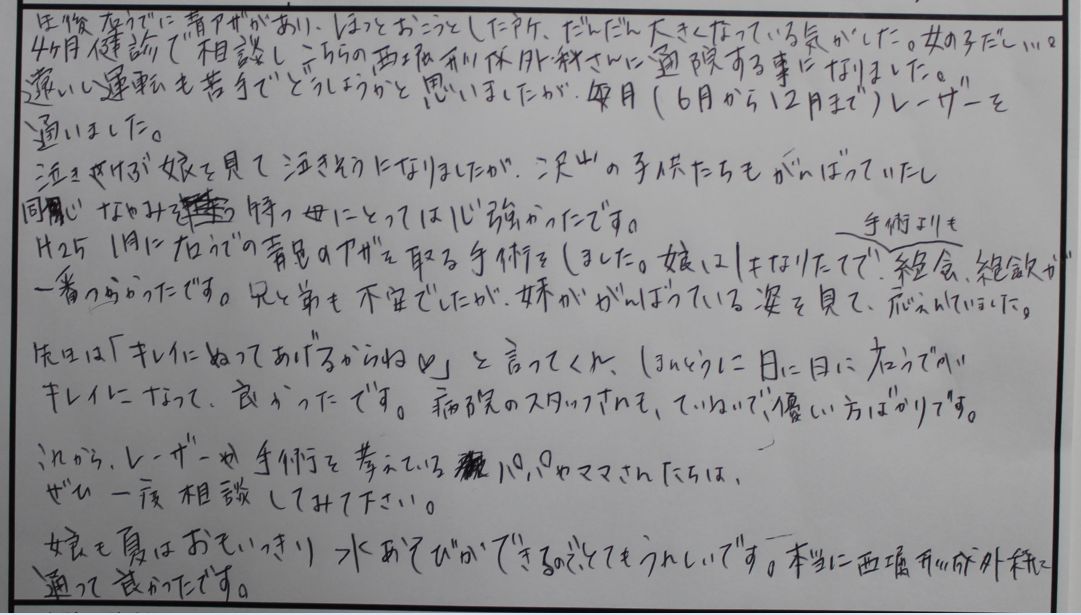 生後右うでに青アザがあり、ほっとおこうとした所、だんだん大きくなっている気がした。女の子だしい…。
4ヶ月健診で相談しこちらの西堀形成外科さんに通院する事になりました。
遠いし運転も苦手でどうしようかと思いましたが、毎月(6月から12月まで)レーザーを
通いました。
泣きさけぶ娘を見て泣きそうになりましたが、沢山の子供たちもがんばっていたし
同じなやみを持つ母にとっては心強かったです。
手術よりも
H25 1月に右うでの青色のアザを取る手術をしました。娘は1才なりたてで、絶食、絶飲が
一番つらかったです。兄と弟も不安でしたが、妹ががんばっている姿を見て、応えんしていました。
先生は「キレイにぬってあげるからね♡」と言ってくれ、ほんとうに日に日に右うでが
キレイになって、良かったです。病院のスタッフさんも、ていねいで、優しい方ばかりです。
これから、レーザーや手術を考えているパパやママさんたちは、
ぜひ一度相談してみて下さい。
娘も夏はおもいっきり水あそびができるので、とてもうれしいです。本当に西堀形成外科に
通って良かったです。